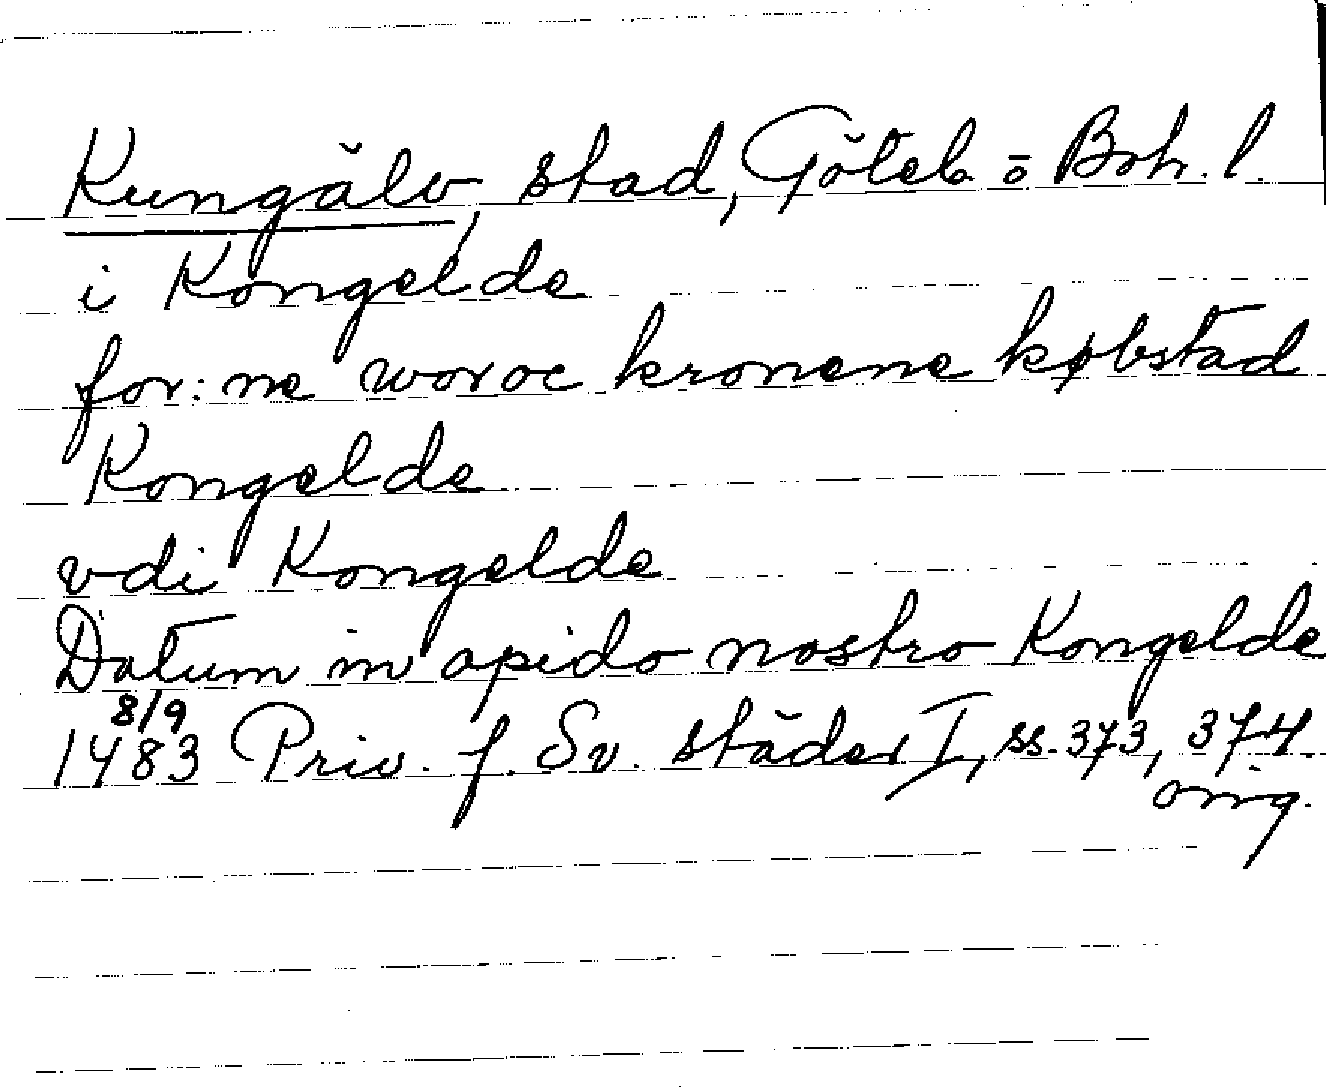 Kungälv, stad, Göteb o Boh. l.
i Kongelde
for: ne woroe kronene købstad
Kongelde
vdi Kongelde
Datum in opido nostro Kongelde
8/9
1483 Priv. f. Sv. städer I, ss. 373, 374
orig.